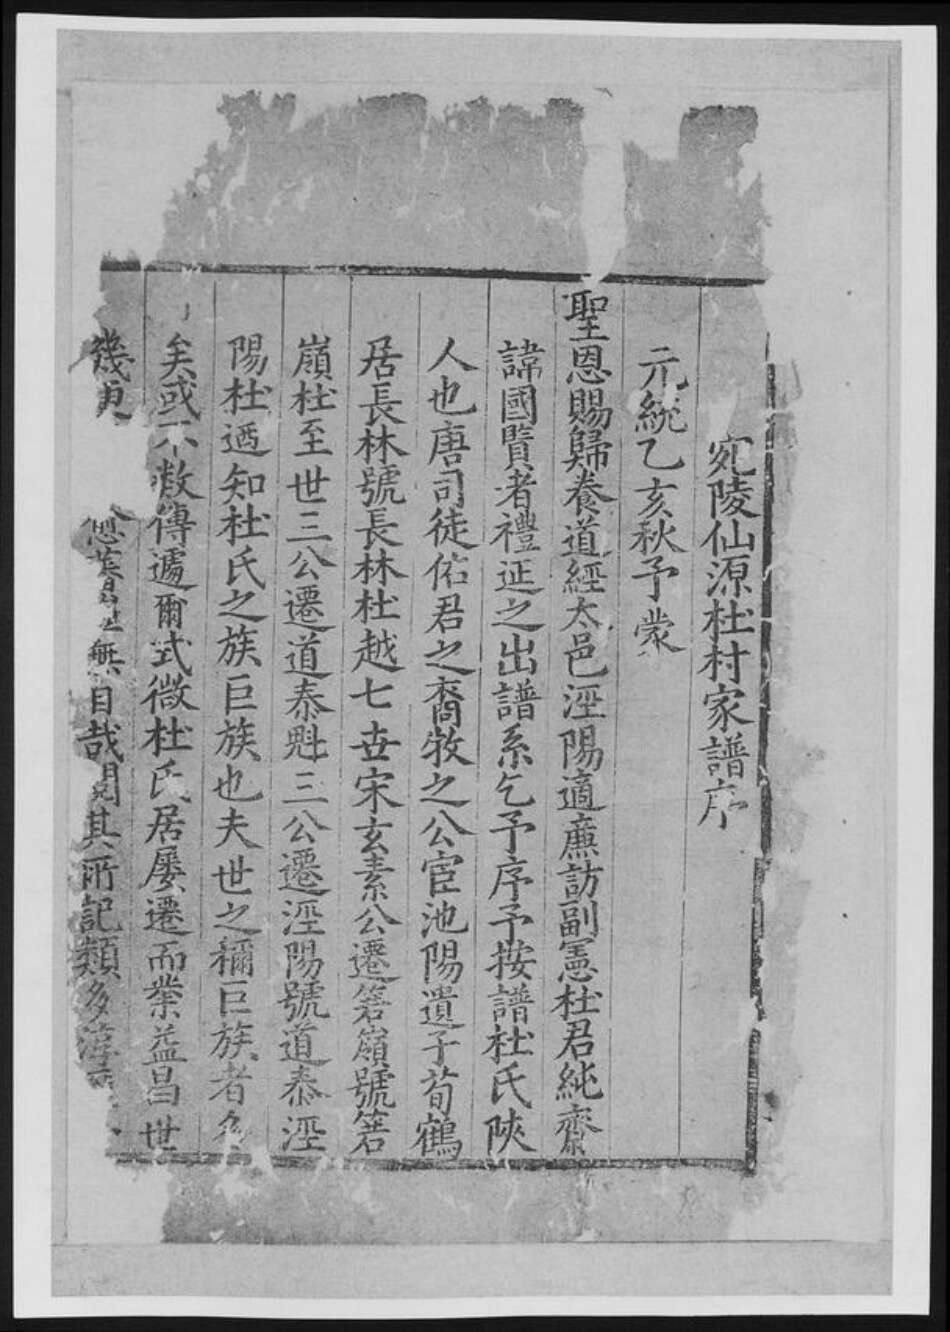 宛陵仙源杜村家譜序
元統乙亥秋予蒙
聖恩賜歸養道經太邑涇陽適廉訪副憲杜君純齋
諱國賢者禮延之出譜系乞予序予按譜杜氏陝
人也唐司徒佑君之裔牧之公宦池陽遺子荀鶴
居長林號長林杜越七世宋玄素公遷箬嶺號箬
嶺杜至世三公遷道泰魁三公遷涇陽號道泰涇
陽杜迺知杜氏之族巨族也夫世之稱巨族者多
矣或不數傳遽爾式微杜氏居屢遷而業益昌世
幾更 無目哉閱其所記類多淳